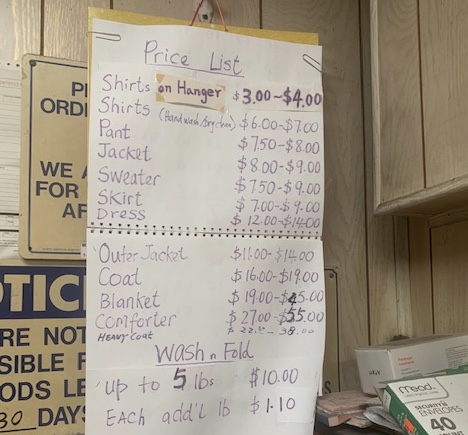 Price List
Shirts on Hanger $3.00~$4.00
Shirts (Hand wash/Dry clean) $6.00~$7.00
Pant $7.50~$8.00
Jacket $8.00~$9.00
Sweater $7.50~$9.00
Skirt $7.00~$9.00
Dress $12.00~$14.00
Outer Jacket $11.00~$14.00
Coat $16.00~$19.00
Blanket $19.00~$45.00
Comforter $27.00~$55.00
HEAVY COAT $22.00~38.00
Wash n Fold
up to 5 lbs $10.00
EACH add'L lb $1.10
P
ORD
WE
FOR
AF
TIC
RE NOT
SIBLE F
ODS LE
30 DAYS
mead
SECURITY
ENVELOPES
40